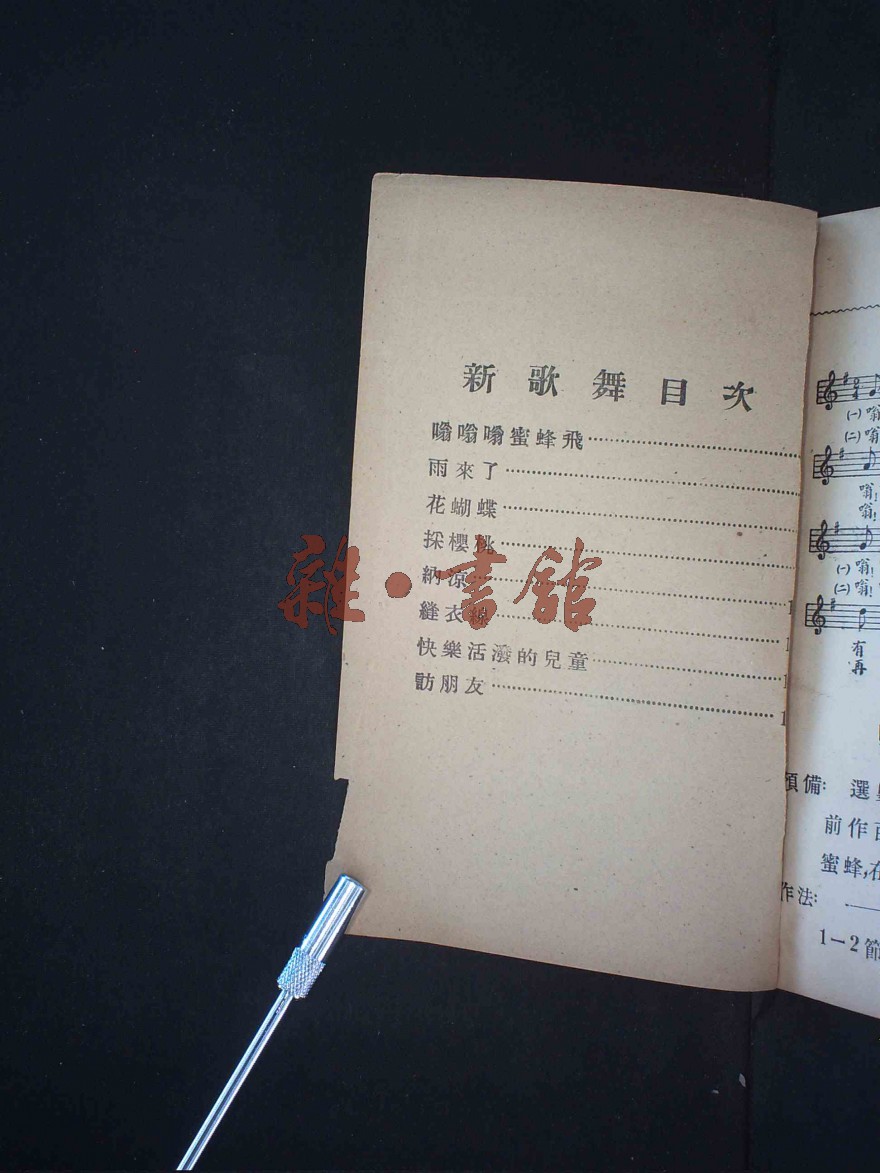 新歌舞目次
嗡嗡嗡蜜蜂飛
雨來了
花蝴蝶
採櫻桃
納凉 1
縫衣線 1
快樂活潑的兒童 1
訪朋友 1
雜·書館
(一)嗡
(二)嗡
嗡!
嗡!
(一)嗡!
(二)嗡!
有
再
預備: 選
前作
蜜蜂,在
作法: 一
1-2節